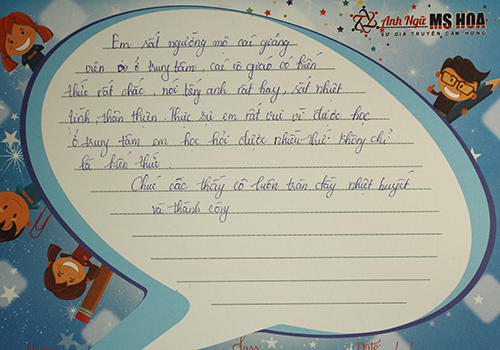 Anh Ngữ MS HOA
SỨ GIẢ TRUYỀN CẢM HỨNG
Em rất ngưỡng mộ các giảng
viên ở trung tâm, các cô giáo có kiến
thức rất chắc, nói tiếng anh rất hay, rất nhiệt
tình, thân thiện. Thực sự em rất vui vì được học
ở trung tâm em học hỏi được nhiều thứ không chỉ
là kiến thức.
Chúc các thầy cô luôn tràn đầy nhiệt huyết
và thành công
Class
Date: